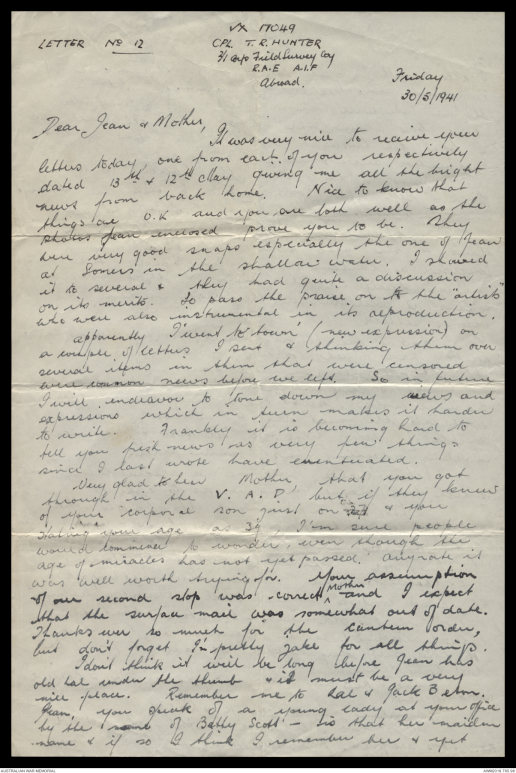 VX 17049
LETTER No 12 CPL T. R. HUNTER
2/1 Corp Field Survey Coy
R.A.E A.I.F
Abroad.
Friday
30/5/1941
Dear Jean & Mother,
It was very nice to receive your
letters today, one from each of you respectively
dated 13th & 12th May giving me all the bright
news from back home. Nice to know that
things are O.K and you are both well as the
photos Jean enclosed prove you to be. They
were very good snaps especially the one of Jean
at Somers in the shallow water. I showed
it to several & they had quite a discussion
on its merits. So pass the praise on to the "artists"
who were also instrumental in its reproduction.
Apparently I 'went to town' (new expression) on
a couple of letters I sent & thinking them over
several items in them that were censored
were common news before we left. So in future
I will endeavor to tone down my news and
expressions which in turn makes it harder
to write. Frankly it is becoming hard to
tell you fresh news as very few things
since I last wrote have eventuated.
Very glad to hear Mother, that you got
through in the V.A.D. but if they knew
of your corporal son just on & you
stating your age as 39, I'm sure people
would commence to wonder, even though the
age of miracles has not yet passed. Anyrate it
was well worth trying for. Your assumption
of our second stop was correct Mother and I expect
that the surface mail was somewhat out of date.
Thanks ever so much for the canteen order,
but don't forget I'm pretty jake for all things.
I don't think it will be long before Jean has
old Hal under the thumb & it must be a very
nice place. Remember me to Hal & Jack B elm.
Jean, you speak of a young lady at your office
by the name of Betty Scott - is that her maiden
name & if so I think I remember her & yet
AUSTRALIAN WAR MEMORIAL